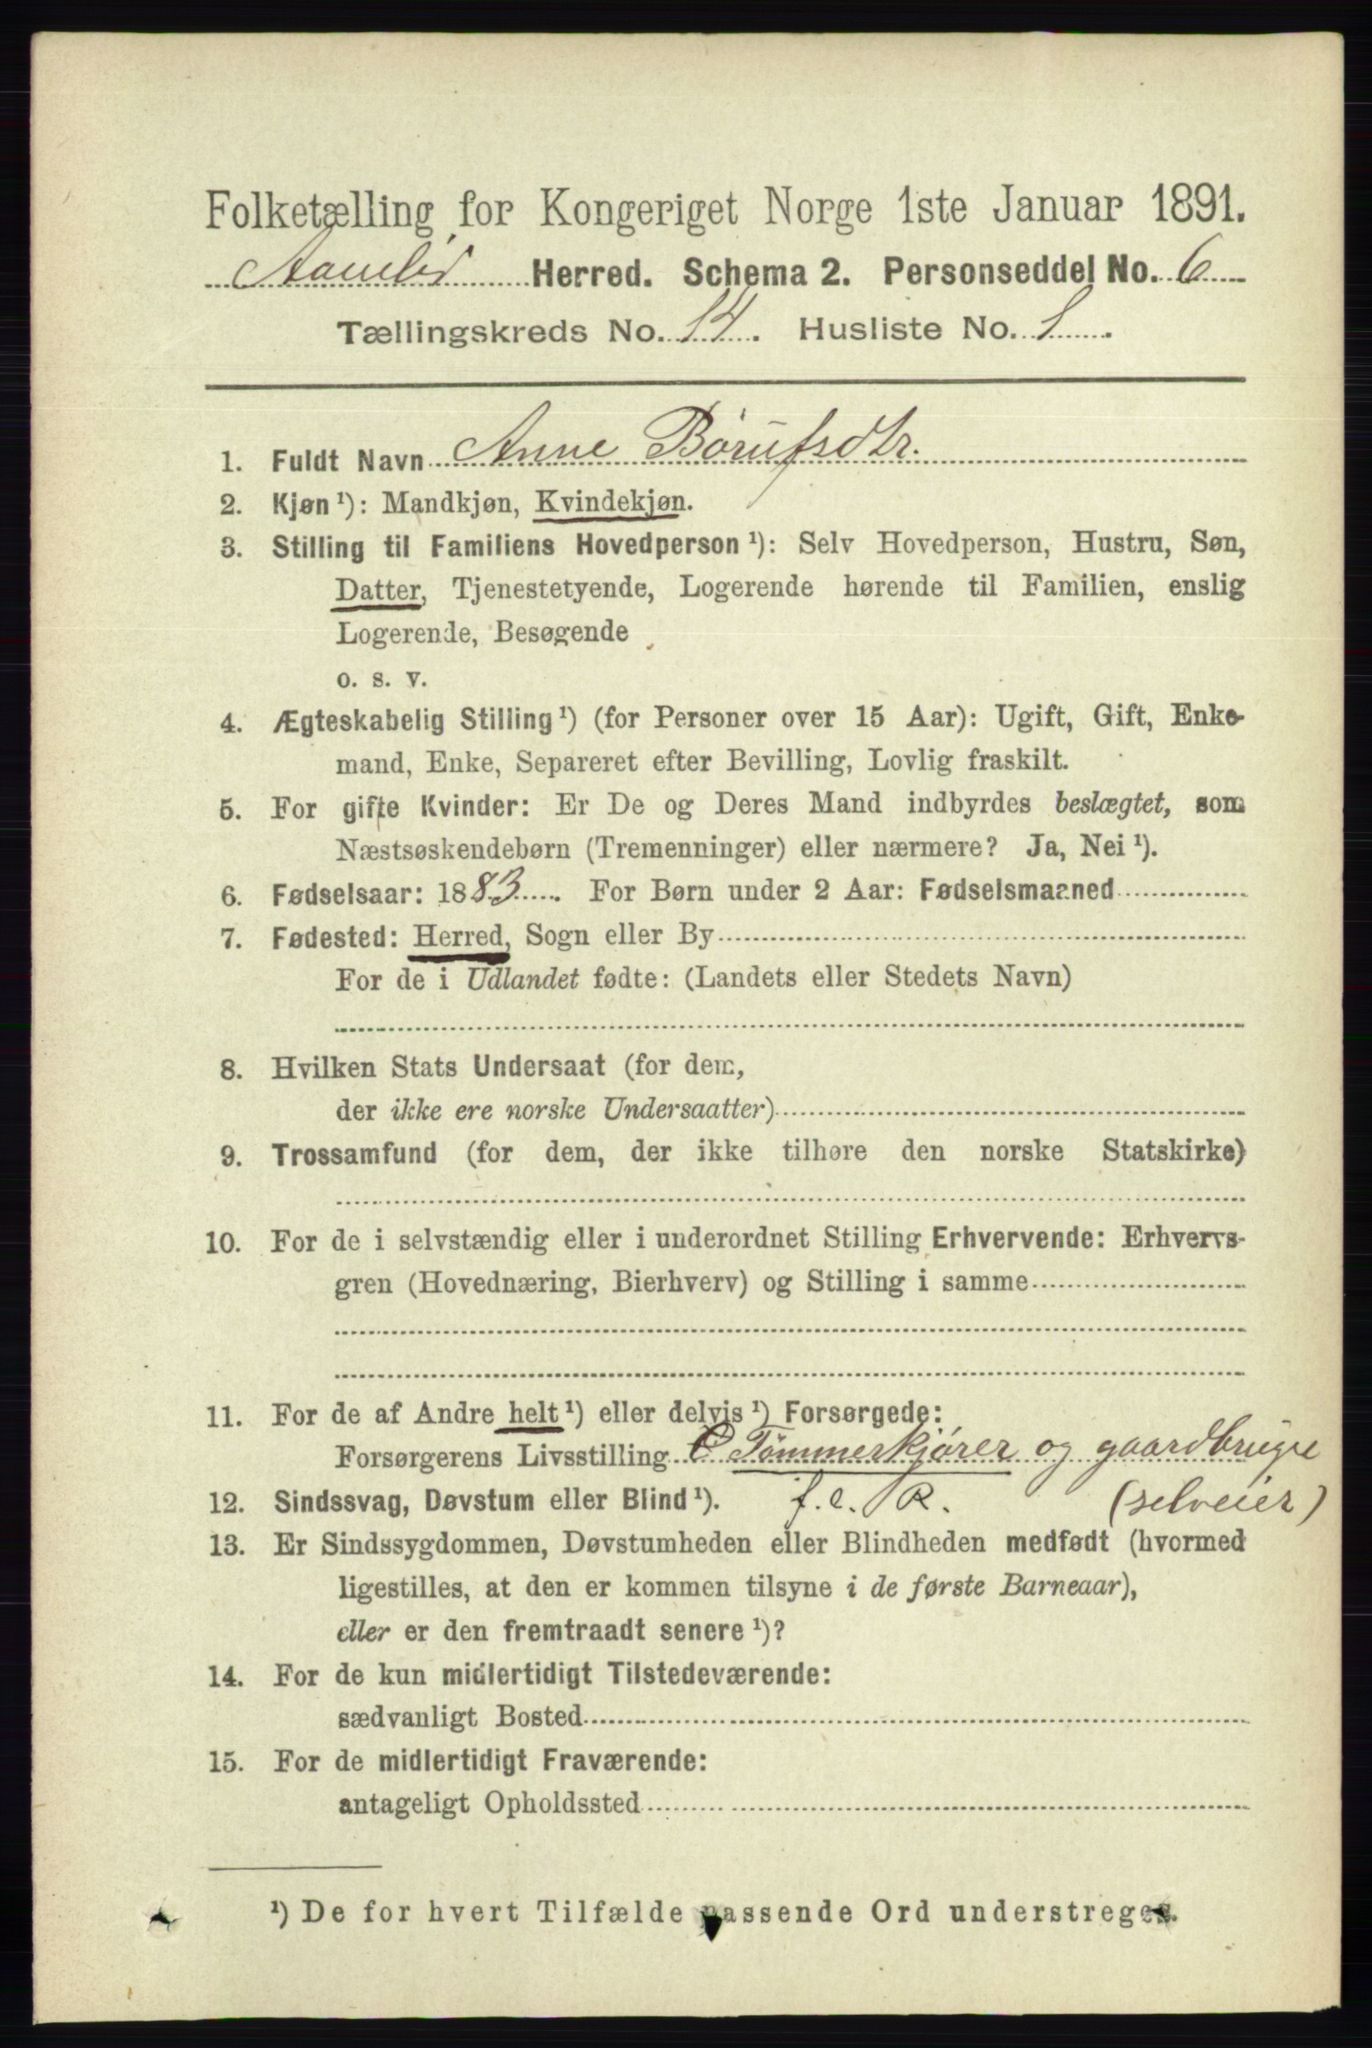 Folketælling for Kongeriget Norge 1ste Januar 1891.
Aamlid Herred. Schema 2. Personseddel No. 6
Tællingskreds No. 14. Husliste No. 1.
1. Fuldt Navn Anne Børufsdtr.
2. Kjøn ¹): Mandkjøn, Kvindekjøn.
3. Stilling til Familiens Hovedperson ¹): Selv Hovedperson, Hustru, Søn,
Datter, Tjenestetyende, Logerende hørende til Familien, enslig
Logerende, Besøgende
o. s. v.
4. Ægteskabelig Stilling ¹) (for Personer over 15 Aar): Ugift, Gift, Enke-
mand, Enke, Separeret efter Bevilling, Lovlig fraskilt.
5. For gifte Kvinder: Er De og Deres Mand indbyrdes beslægtet, som
Næstsøskendebørn (Tremenninger) eller nærmere? Ja, Nei ¹).
6. Fødselsaar: 1883. For Børn under 2 Aar: Fødselsmaaned
7. Fødested: Herred, Sogn eller By
For de i Udlandet fødte: (Landets eller Stedets Navn)
8. Hvilken Stats Undersaat (for dem,
der ikke ere norske Undersaatter)
9. Trossamfund (for dem, der ikke tilhøre den norske Statskirke)
10. For de i selvstændig eller i underordnet Stilling Erhvervende: Erhvervs-
gren (Hovednæring, Bierhverv) og Stilling i samme
11. For de af Andre helt ¹) eller delvis ¹) Forsørgede:
Forsørgerens Livsstilling Tømmerkjører og gaardbruger
12. Sindssvag, Døvstum eller Blind ¹). f. e. R. (selveier)
13. Er Sindssygdommen, Døvstumheden eller Blindheden medfødt (hvormed
ligestilles, at den er kommen tilsyne i de første Barneaar),
eller er den fremtraadt senere ¹)?
14. For de kun midlertidigt Tilstedeværende:
sædvanligt Bosted
15. For de midlertidigt Fraværende:
antageligt Opholdssted
¹) De for hvert Tilfælde passende Ord understreges.